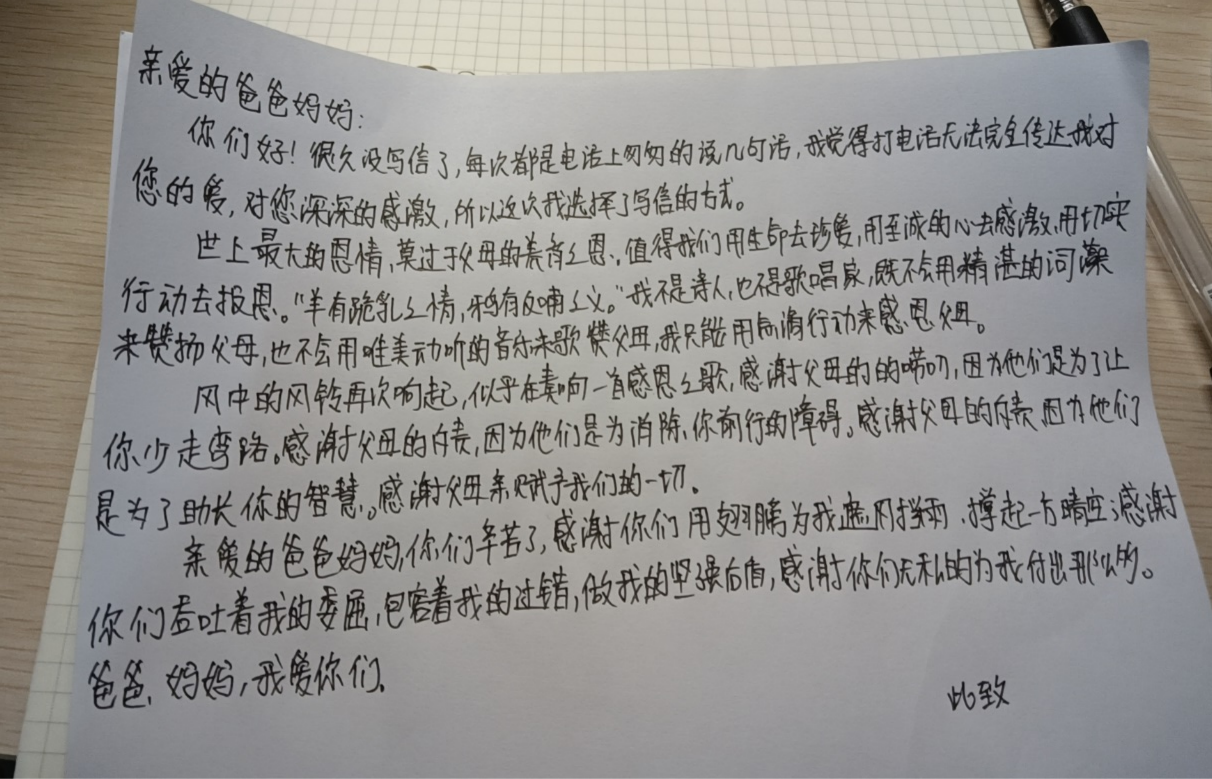 亲爱的爸爸妈妈：
你们好！很久没写信了，每次都是电话上匆匆的说几句话，我觉得打电话无法完全传达我对
您的爱，对您深深的感激，所以这次我选择了写信的方式。
世上最大的恩情，莫过于父母的养育之恩。值得我们用生命去珍爱，用至诚的心去感激，用切实
行动去报恩。“羊有跪乳之情，鸦有反哺之义。”我不是诗人，也不是歌唱家，既不会用精湛的词藻
来赞扬父母，也不会用唯美动听的音乐来歌赞父母，我只能用行动来感恩父母。
风中的风铃再次响起，似乎在奏响一首感恩之歌，感谢父母的的唠叨，因为他们是为了让
你少走弯路。感谢父母的斥责，因为他们是为消除你前行的障碍。感谢父母的斥责，因为他们
是为了助长你的智慧。感谢父母亲赋予我们的一切。
亲爱的爸爸妈妈，你们辛苦了，感谢你们用翅膀为我遮风挡雨、撑起一方晴空；感谢
你们吞吐着我的委屈，包容着我的过错，做我的坚强后盾，感谢你们无私的为我付出那么多。
爸爸、妈妈，我爱你们。
此致